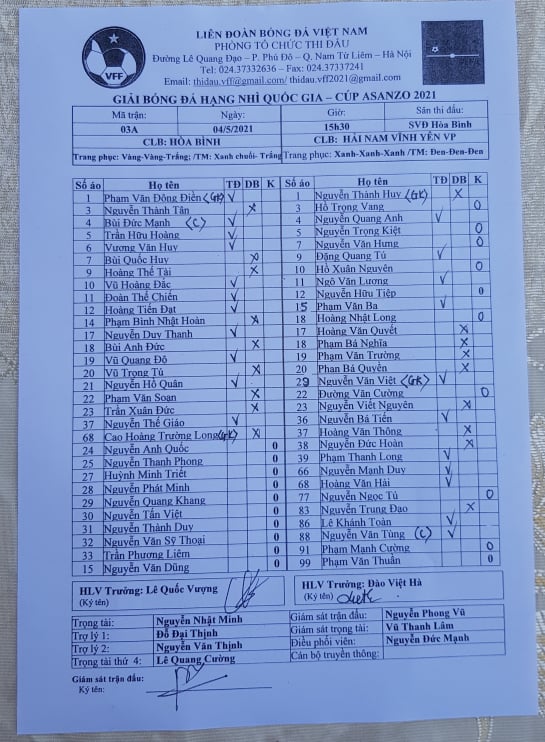 LIÊN ĐOÀN BÓNG ĐÁ VIỆT NAM
PHÒNG TỔ CHỨC THI ĐẤU
Đường Lê Quang Đạo – P. Phú Đô – Q. Nam Từ Liêm – Hà Nội
Tel: 024.37332636 – Fax: 024.37337241
Email: thidau.vff@gmail.com/ thidau.vff2021@gmail.com
VFF
GIẢI BÓNG ĐÁ HẠNG NHÌ QUỐC GIA – CÚP ASANZO 2021
Mã trận: Ngày: Giờ: Sân thi đấu:
03A 04/5/2021 15h30 SVĐ Hòa Bình
CLB: HÒA BÌNH CLB: HẢI NAM VĨNH YÊN VP
Trang phục: Vàng-Vàng-Trắng; /TM: Xanh chuối- Trắng Trang phục: Xanh-Xanh-Xanh /TM: Đen-Đen-Đen
Số áo Họ tên TĐ DB K Số áo Họ tên TĐ DB K
1 Phạm Văn Đông Điền (GK) V 1 Nguyễn Thành Huy (GK) X
3 Nguyễn Thành Tân X 3 Hồ Trọng Vang 0
4 Bùi Đức Mạnh (C) V 4 Nguyễn Quang Anh V
5 Trần Hữu Hoàng V 5 Nguyễn Trọng Kiệt 0
6 Vương Văn Huy V 7 Nguyễn Văn Hưng 0
7 Bùi Quốc Huy X 9 Đặng Quang Tú V
9 Hoàng Thế Tài X 10 Hồ Xuân Nguyên 0
10 Vũ Hoàng Đắc V 11 Ngô Văn Lương V
11 Đoàn Thế Chiến V 12 Nguyễn Hữu Tiệp 0
12 Hoàng Tiến Đạt V 15 Phạm Văn Ba V
14 Phạm Bình Nhật Hoàn X 18 Hoàng Nhật Long 0
17 Nguyễn Duy Thanh V 17 Hoàng Văn Quyết X
18 Bùi Anh Đức X 18 Phạm Bá Nghĩa X
19 Vũ Quang Độ V 19 Phạm Văn Trường X
20 Vũ Trọng Tú X 20 Phan Bá Quyền X
21 Nguyễn Hồ Quân V 29 Nguyễn Văn Việt (GK) V
22 Phạm Văn Soạn X 22 Đường Văn Cường 0
23 Trần Xuân Đức X 23 Nguyễn Viết Nguyên X
37 Nguyễn Thế Giáo V 36 Nguyễn Bá Tiến V
68 Cao Hoàng Trường Long (GK) X 37 Hoàng Văn Thông X
24 Nguyễn Anh Quốc 0 38 Nguyễn Đức Hoàn X
25 Nguyễn Thanh Phong 0 39 Phạm Thanh Long V
27 Huỳnh Minh Triết 0 66 Nguyễn Mạnh Duy V
28 Nguyễn Phát Minh 0 68 Hoàng Văn Hải V
29 Nguyễn Quang Khang 0 77 Nguyễn Ngọc Tú 0
30 Nguyễn Tấn Việt 0 83 Nguyễn Trung Đạo X
31 Nguyễn Thành Duy 0 86 Lê Khánh Toàn V
32 Nguyễn Văn Sỹ Thoại 0 88 Nguyễn Văn Tùng (C) V
33 Trần Phương Liêm 0 91 Phạm Mạnh Cường 0
15 Nguyễn Văn Dũng 0 99 Phạm Văn Thuân 0
HLV Trưởng: Lê Quốc Vượng HLV Trưởng: Đào Việt Hà
(Ký tên) (Ký tên)
Trọng tài: Nguyễn Nhật Minh Giám sát trận đấu: Nguyễn Phong Vũ
Trợ lý 1: Đỗ Đại Thịnh Giám sát trọng tài: Vũ Thanh Lâm
Trợ lý 2: Nguyễn Văn Thịnh Điều phối viên: Nguyễn Đức Mạnh
Trọng tài thứ 4: Lê Quang Cường Cán bộ truyền thông:
Giám sát trận đấu:
Ký tên: